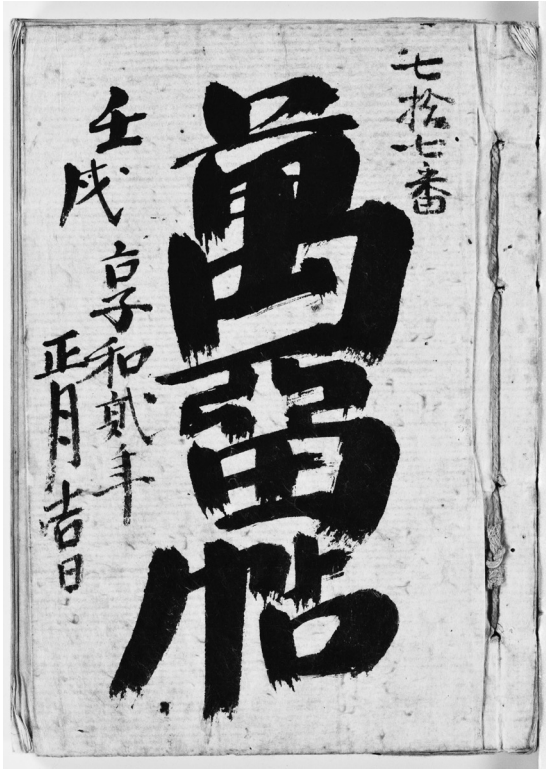 七拾七番
萬留帖
壬戌
享和貳年
正月吉日